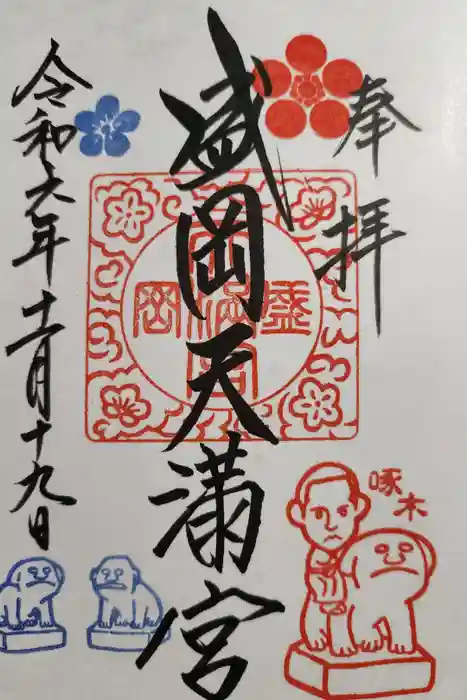 奉拝
盛岡天満宮
令和六年十一月十九日
盛岡
天満宮
啄木